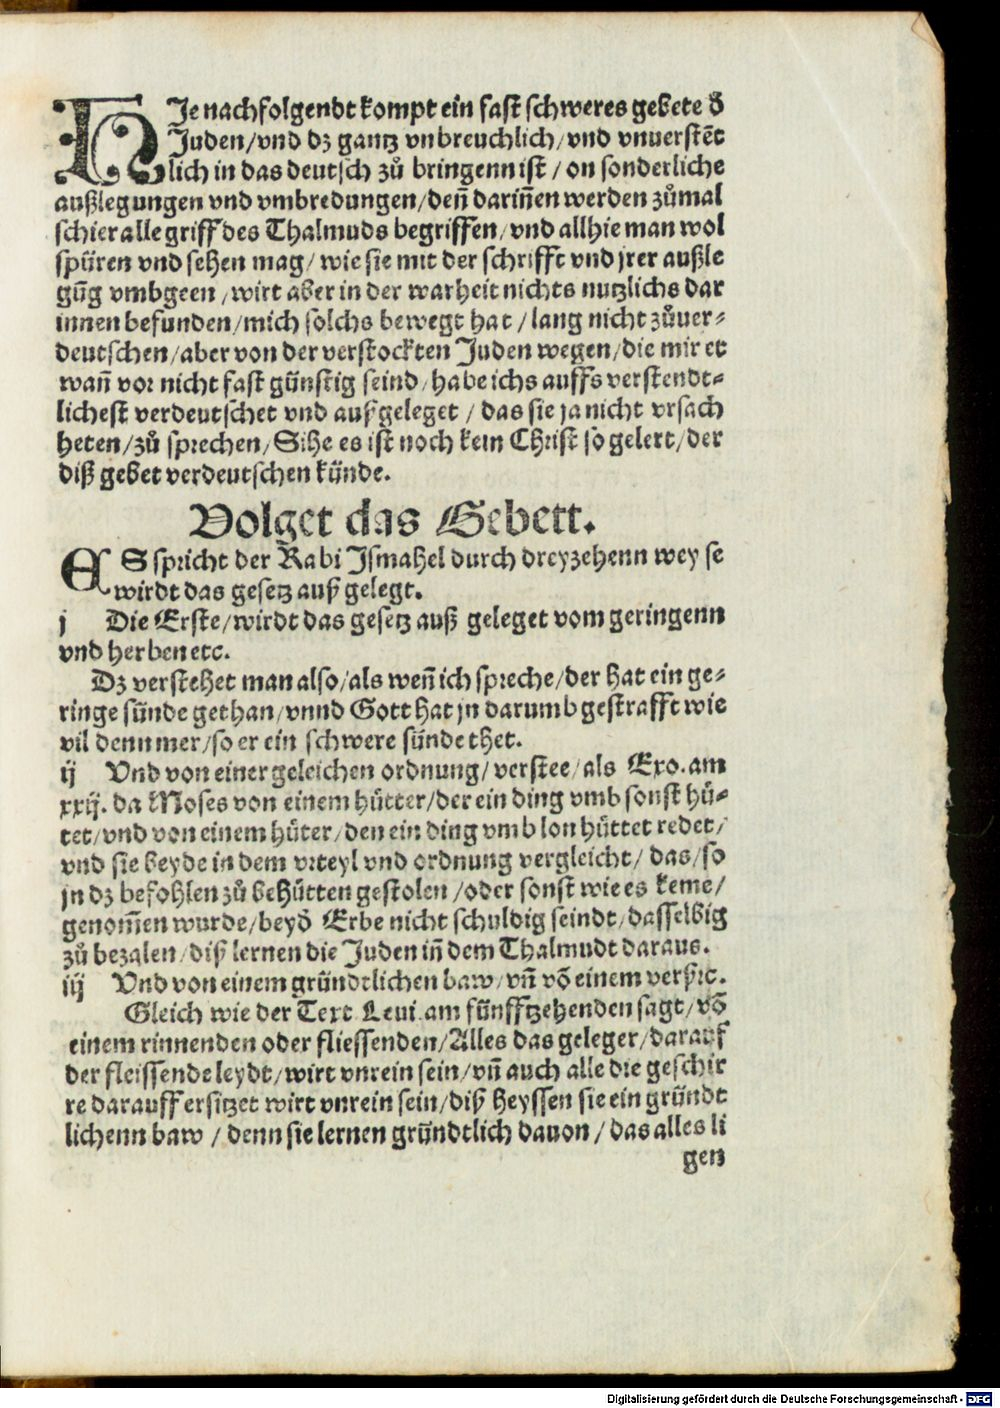 HJe nachfolgendt kompt ein fast schweres gebete d̄
Juden/vnd dz gantz vnbreuchlich/vnd vnuerstẽt
lich in das deutsch zů bringenn ist / on sonderliche
außlegungen vnd vmbredungen/deñ dariñen werden zůmal
schier alle griff des Thalmuds begriffen/vnd allhie man wol
spüren vnd sehen mag/ wie sie mit der schrifft vnd jrer außle
gũg vmbgeen /wirt aber in der warheit nichts nutzlichs dar
innen befunden/mich solchs bewegt hat / lang nicht zůuer-
deutschen/aber von der verstockten Juden wegen/die mir et
wañ vor nicht fast günstig seind/habe ichs auffs verstendt-
lichest verdeutschet vnd außgeleget / das sie ja nicht vrsach
heten/zů sprechen/Sihe es ist noch kein Christ so gelert/der
diß gebet verdeutschen künde.
Volget das Gebett.
ES spricht der Rabi Ismahel durch dreyzehenn weyse
wirdt das gesetz außgelegt.
j Die Erste/wirdt das gesetz auß geleget vom geringenn
vnd herben etc.
Dz verstehet man also/als weñ ich spreche/der hat ein ge-
ringe sünde gethan/vnnd Gott hat jn darumb gestrafft wie
vil denn mer/so er ein schwere sünde thet.
ij Vnd von einer geleichen ordnung/verstee/als Exo.am
xxij. da Moses von einem hütter/der ein ding vmb sonst hü-
tet/vnd von einem hüter/den ein ding vmb lon hüttet redet/
vnd sie beyde in dem vrteyl vnd ordnung vergleicht/ das/so
jn dz befohlen zů behütten gestolen /oder sonst wie es keme/
genom̃en wurde/beyd̄ Erbe nicht schuldig seindt/dasselbig
zů bezalen/diß lernen die Juden iñ dem Thalmudt daraus.
iij Vnd von einem gründtlichen baw/vñ võ einem verß ꝛc.
Gleich wie der Text Leui.am fünfftzehenden sagt/võ
einem rinnenden oder fliessenden/Alles das geleger/darauf
der fleissende leydt/wirt vnrein sein/vñ auch alle die geschir
re darauff er sitzet wirt vnrein sein/diß heyssen sie ein gründt
lichenn baw / denn sie lernen gründtlich dauon / das alles li
gen
Digitalisierung gefördert durch die Deutsche Forschungsgemeinschaft - DFG